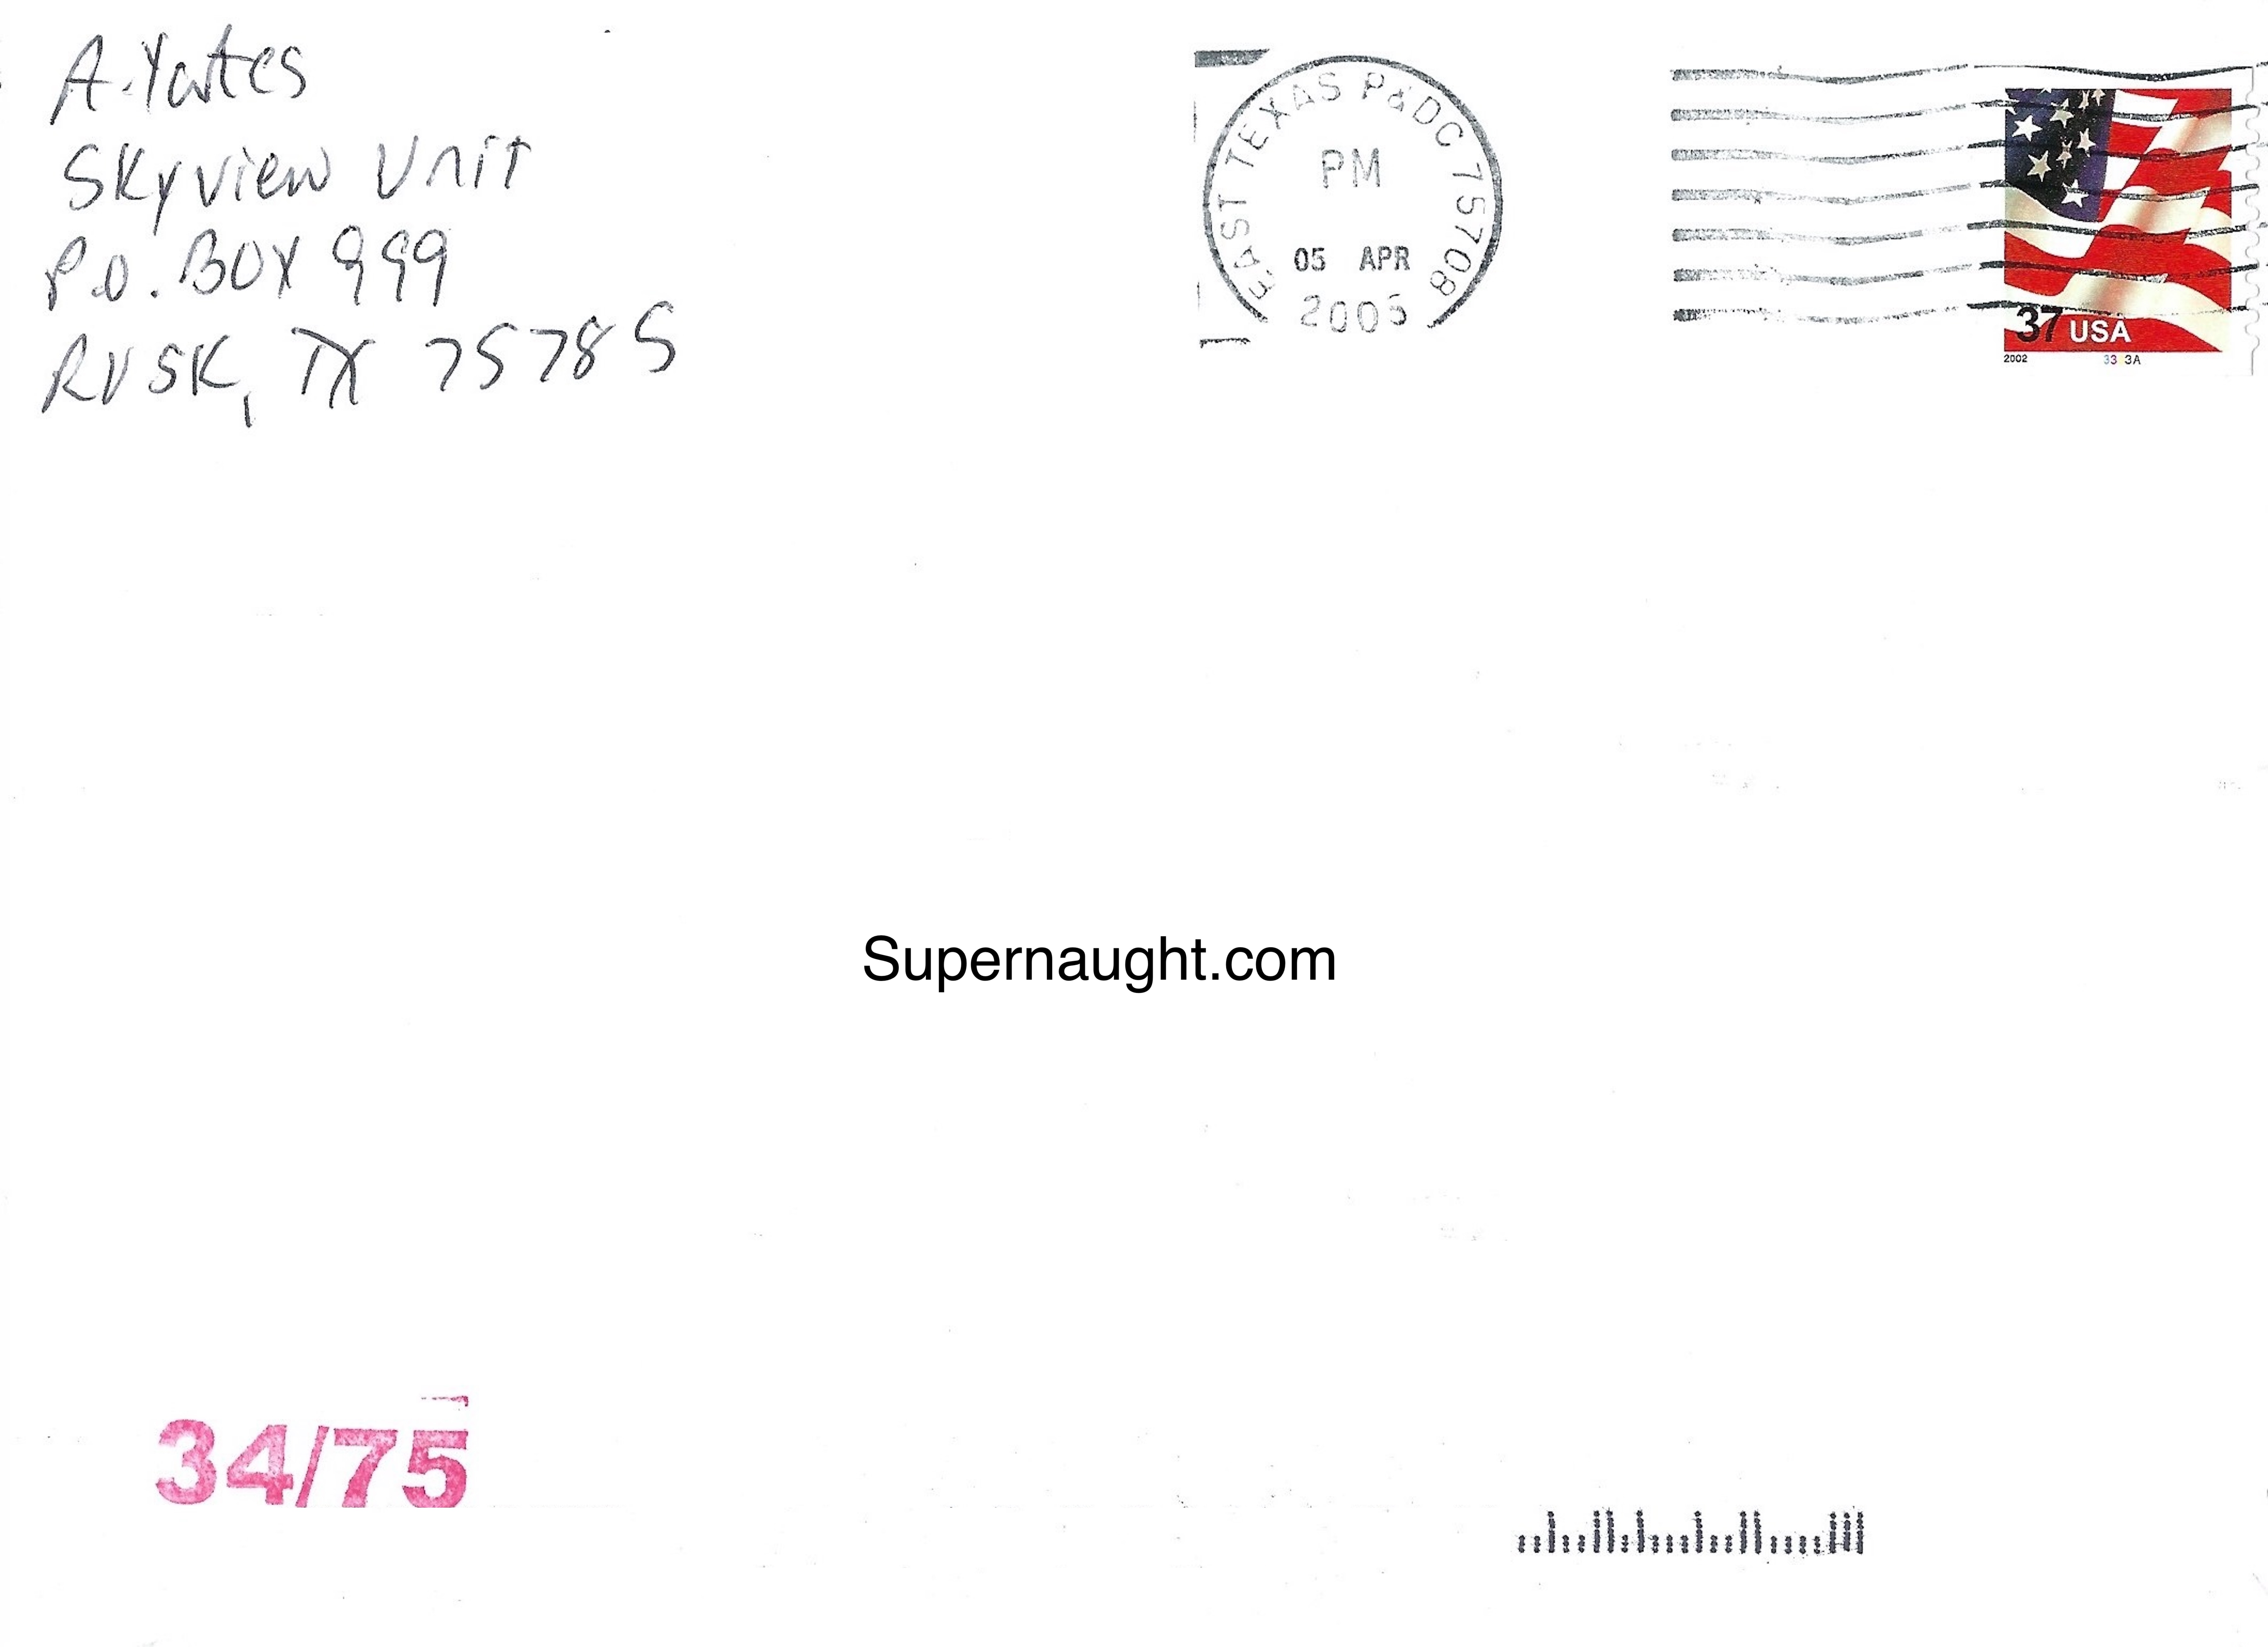 A. Yates
Skyview Unit
P.O. BOX 999
RUSK, TX 75785
EAST TEXAS P&DC 75708
PM
05 APR
2005
37 USA
2002
Supernaught.com
34/75